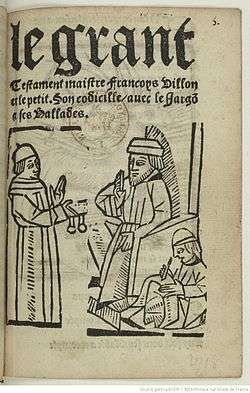 le grant
Testament maistre Francoys Villon
et le petit. Son codicille / auec le Jargõ
& ses Ballades.
Source gallica.bnf.fr / Bibliothèque nationale de France